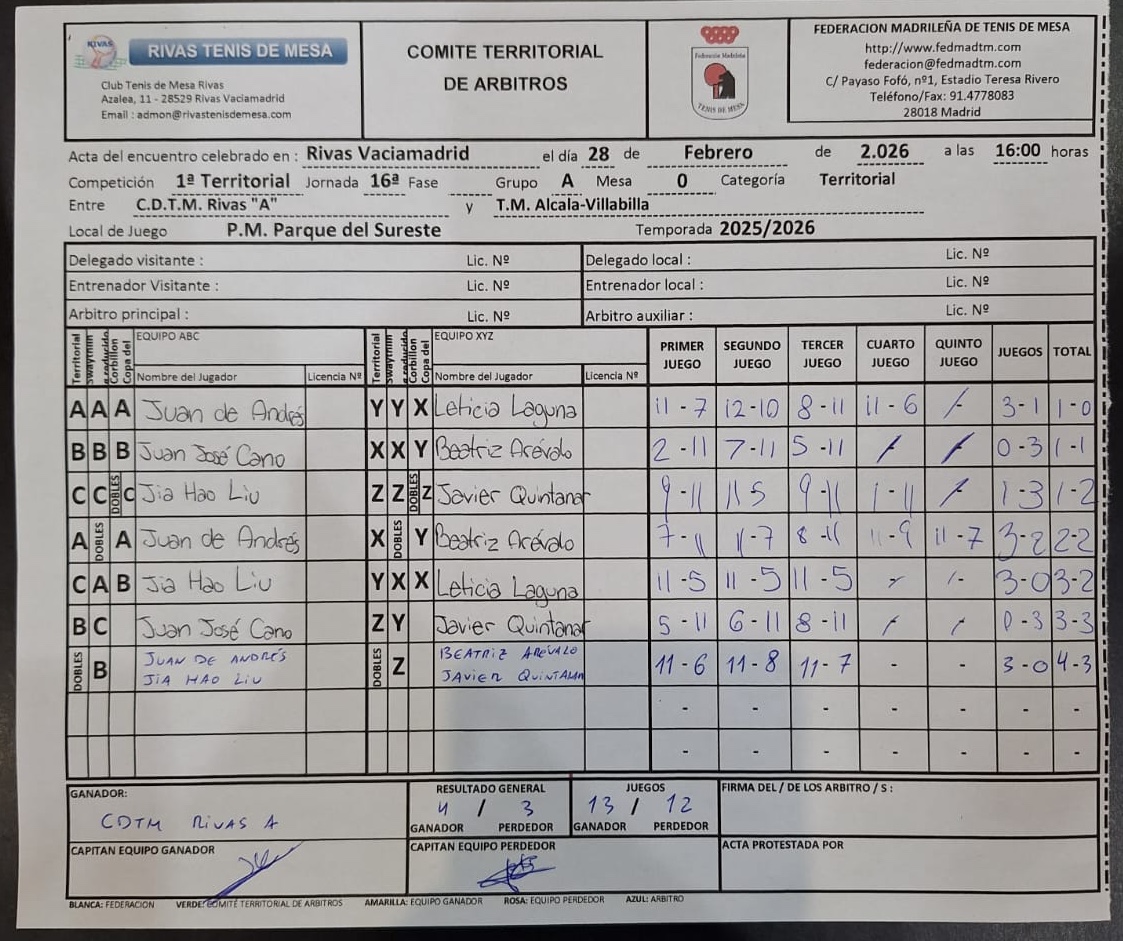 RIVAS RIVAS TENIS DE MESA
Club Tenis de Mesa Rivas
Azalea, 11 - 28529 Rivas Vaciamadrid
Email : admon@rivastenisdemesa.com
COMITE TERRITORIAL
DE ARBITROS
Federación Madrileña
TENIS DE MESA
FEDERACION MADRILEÑA DE TENIS DE MESA
http://www.fedmadtm.com
federacion@fedmadtm.com
C/ Payaso Fofó, nº1, Estadio Teresa Rivero
Teléfono/Fax: 91.4778083
28018 Madrid
Acta del encuentro celebrado en : Rivas Vaciamadrid el día 28 de Febrero de 2.026 a las 16:00 horas
Competición 1ª Territorial Jornada 16ª Fase Grupo A Mesa 0 Categoría Territorial
Entre C.D.T.M. Rivas "A" y T.M. Alcala-Villabilla
Local de Juego P.M. Parque del Sureste Temporada 2025/2026
Delegado visitante : Lic. Nº Delegado local : Lic. Nº
Entrenador Visitante : Lic. Nº Entrenador local : Lic. Nº
Arbitro principal : Lic. Nº Arbitro auxiliar : Lic. Nº
Territorial Swaythlin Corbillon Copa del EQUIPO ABC Territorial Swaythlin Corbillon Copa del EQUIPO XYZ PRIMER JUEGO SEGUNDO JUEGO TERCER JUEGO CUARTO JUEGO QUINTO JUEGO JUEGOS TOTAL
Nombre del Jugador Licencia Nº Nombre del Jugador Licencia Nº
A A A Juan de Andrés Y Y X Leticia Laguna 11 - 7 12 - 10 8 - 11 11 - 6 / 3 - 1 1 - 0
B B B Juan José Cano X X Y Beatriz Arévalo 2 - 11 7 - 11 5 - 11 / / 0 - 3 1 - 1
C C DOBLES C Jia Hao Liu Z Z DOBLES Z Javier Quintanar 9 - 11 11 5 9 - 11 1 - 11 / 1 - 3 1 - 2
A DOBLES A Juan de Andrés X DOBLES Y Beatriz Arévalo 7 - 11 11 - 7 8 - 11 11 - 9 11 - 7 3 - 2 2 - 2
C A B Jia Hao Liu Y X X Leticia Laguna 11 - 5 11 - 5 11 - 5 - - 3 - 0 3 - 2
B C Juan José Cano Z Y Javier Quintanar 5 - 11 6 - 11 8 - 11 / / 0 - 3 3 - 3
DOBLES B JUAN DE ANDRÉS JIA HAO LIU DOBLES Z BEATRIZ ARÉVALO JAVIER QUINTANAR 11 - 6 11 - 8 11 - 7 - - 3 - 0 4 - 3
- - - - - - -
- - - - - - -
GANADOR: RESULTADO GENERAL JUEGOS FIRMA DEL / DE LOS ARBITRO / S :
CDTM RIVAS A 4 / 3 13 / 12
GANADOR PERDEDOR GANADOR PERDEDOR
CAPITAN EQUIPO GANADOR CAPITAN EQUIPO PERDEDOR ACTA PROTESTADA POR
BLANCA: FEDERACION VERDE: COMITÉ TERRITORIAL DE ARBITROS AMARILLA: EQUIPO GANADOR ROSA: EQUIPO PERDEDOR AZUL: ARBITRO